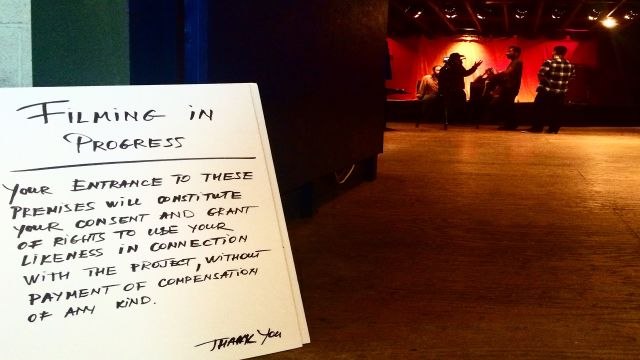 FILMING IN
PROGRESS
YOUR ENTRANCE TO THESE
PREMISES WILL CONSTITUTE
YOUR CONSENT AND GRANT
OF RIGHTS TO USE YOUR
LIKENESS IN CONNECTION
WITH THE PROJECT, WITHOUT
PAYMENT OF COMPENSATION
OF ANY KIND.
THANK YOU